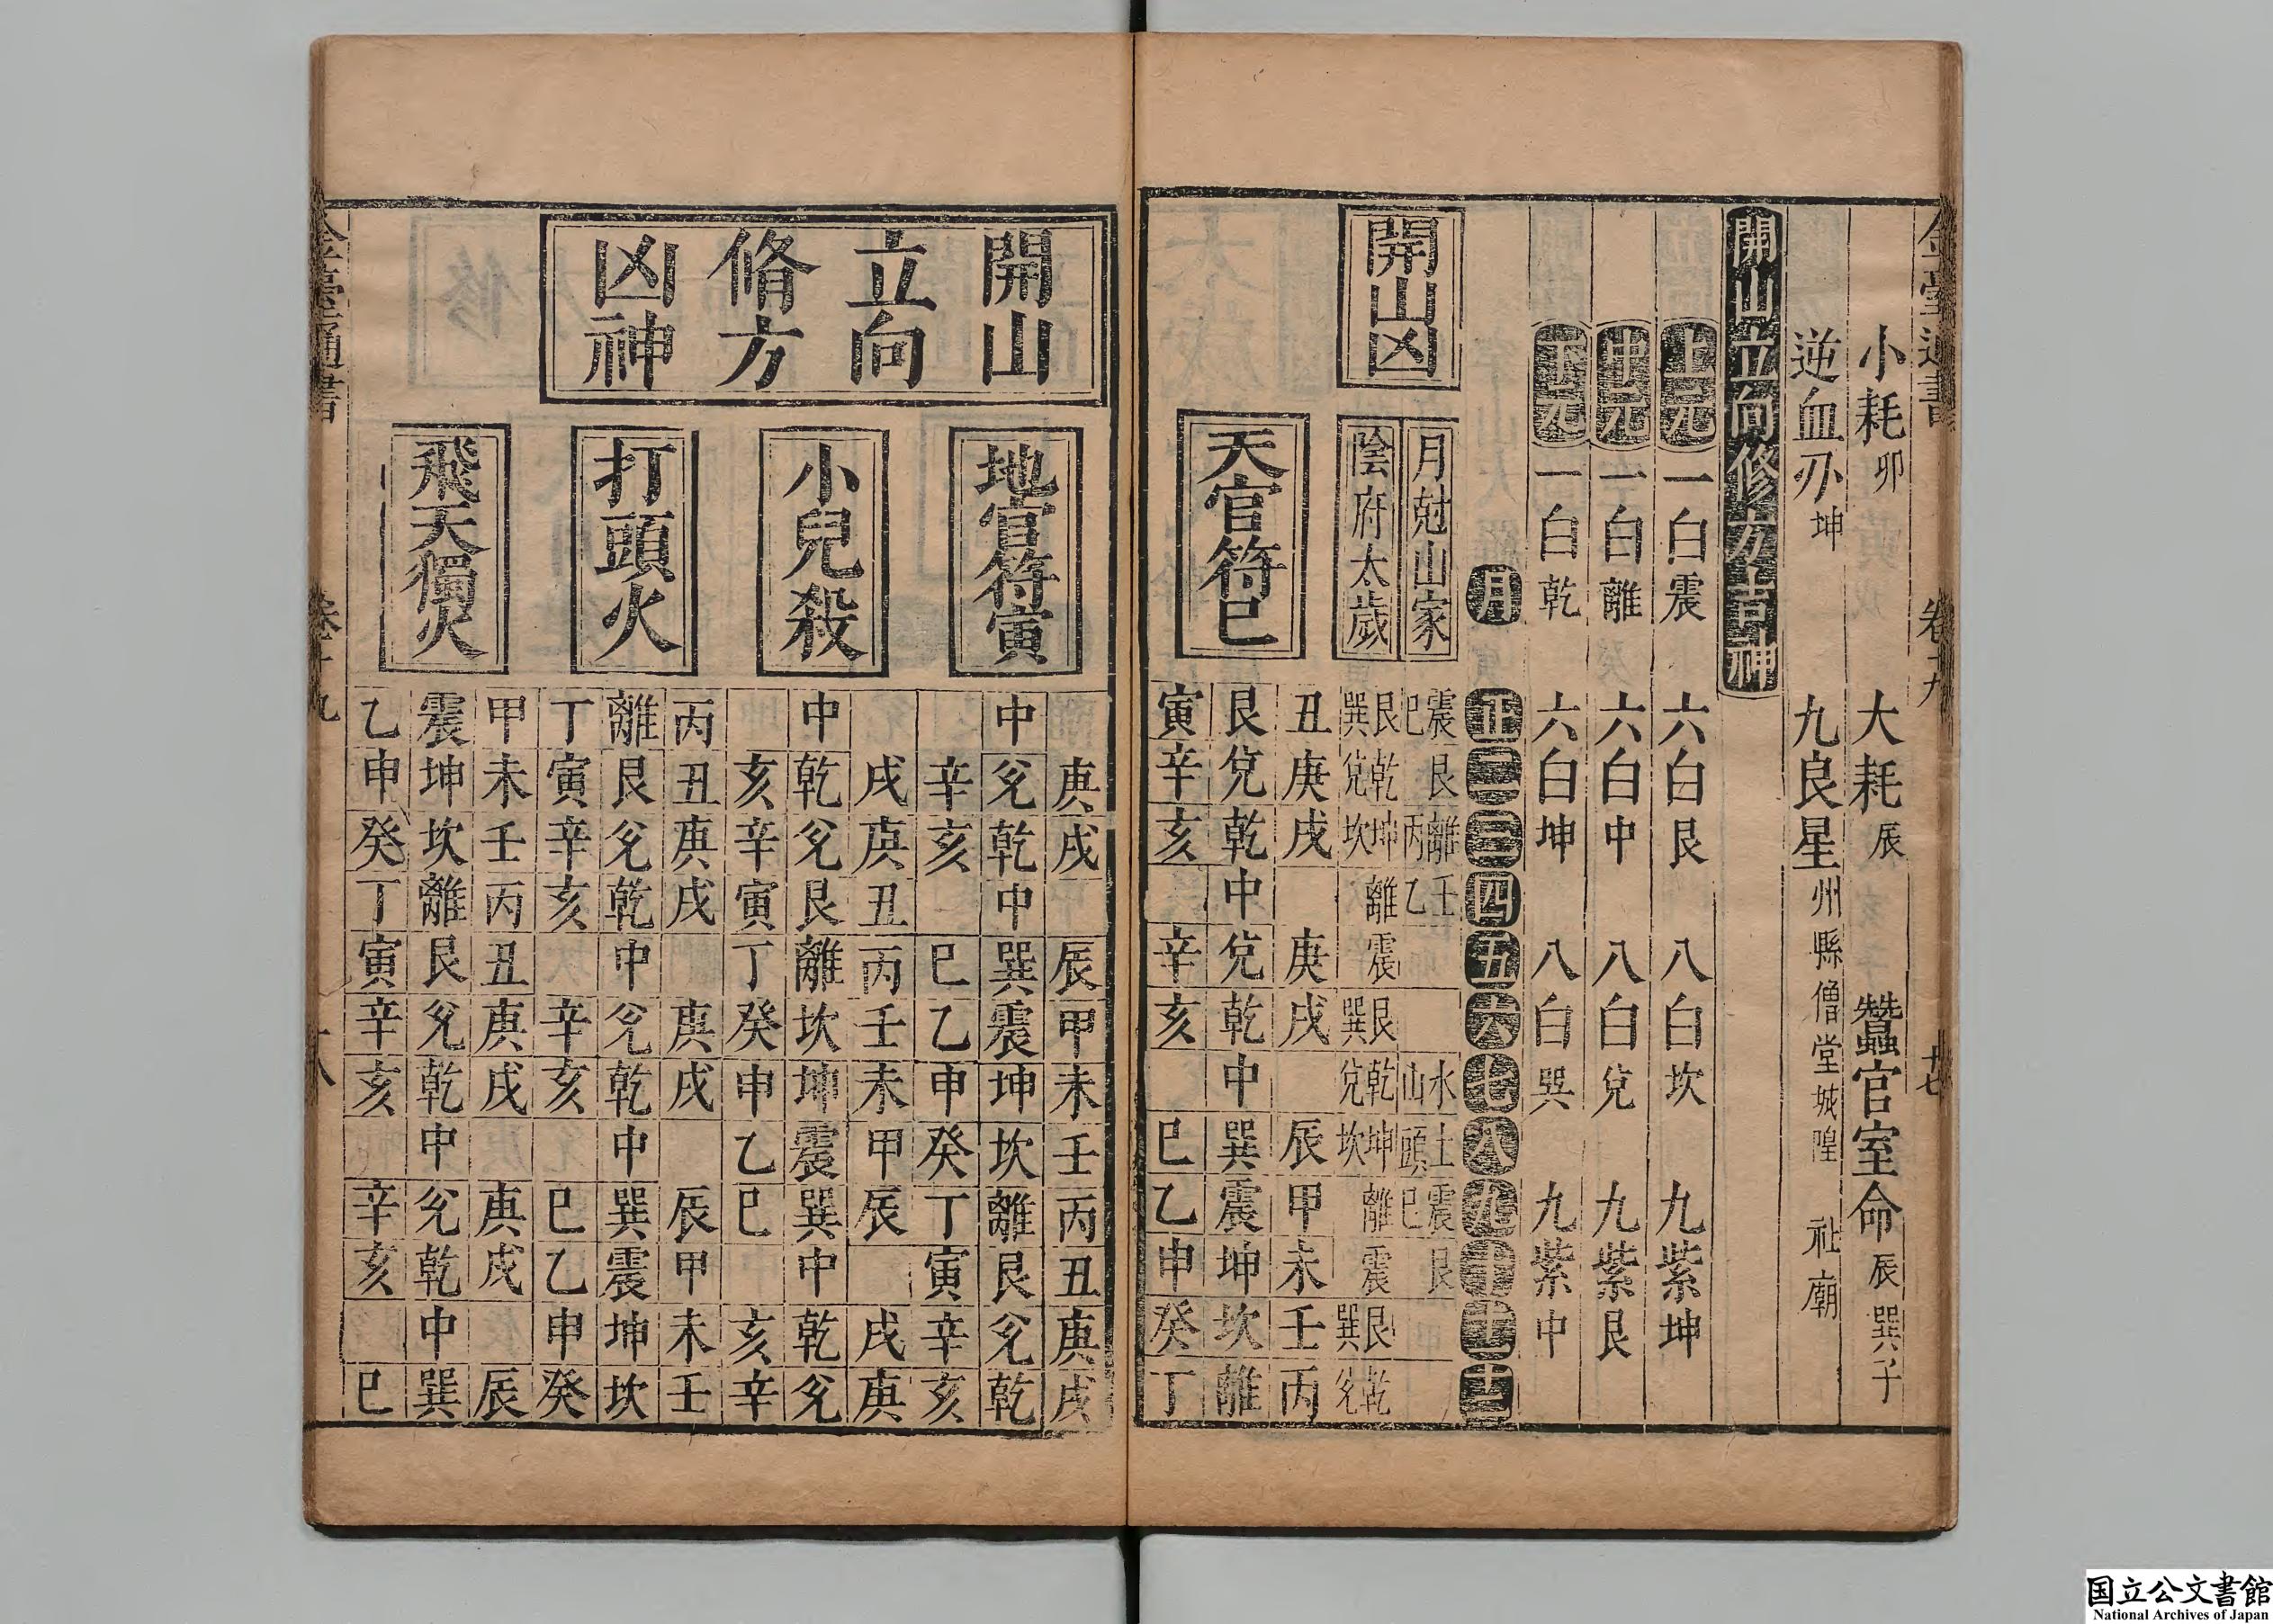 小耗卯 大耗辰 蠶官室命辰巽子
逆血刃坤 九良星州縣僧堂城隍 社廟
開山立向修方吉神
上元 一白震 六白艮 八白坎 九紫坤
中元 一白離 六白中 八白兌 九紫艮
下元 一白乾 六白坤 八白巽 九紫中
月 正 二 三 四 五 六 七 八 九 十 十一 十二
開山凶
月尅山家 震巳 艮 離丙 壬乙 水山 土頭 震巳 艮
陰府太歲 艮巽 乾兌 坤坎 離 震 艮巽 乾兌 坤坎 離 震 艮巽 乾兌
天官符巳
丑庚戌 庚戌 辰甲未壬丙
艮兌乾中兌乾中巽震坤坎離
寅辛亥 辛亥 巳乙申癸丁
開山
立向
脩方
凶神
地官符寅
庚戌 辰甲未壬丙丑庚戌
中兌乾中巽震坤坎離艮兌乾
辛亥 巳乙申癸丁寅辛亥
小兒殺
戌庚丑丙壬未甲辰 戌庚
中乾兌艮離坎坤震巽中乾兌
亥辛寅丁癸申乙巳 亥辛
打頭火
丙丑庚戌 庚戌 辰甲未壬
離艮兌乾中兌乾中巽震坤坎
丁寅辛亥 辛亥 巳乙申癸
飛天獨火
甲未壬丙丑庚戌 庚戌 辰
震坤坎離艮兌乾中兌乾中巽
乙申癸丁寅辛亥 辛亥 巳